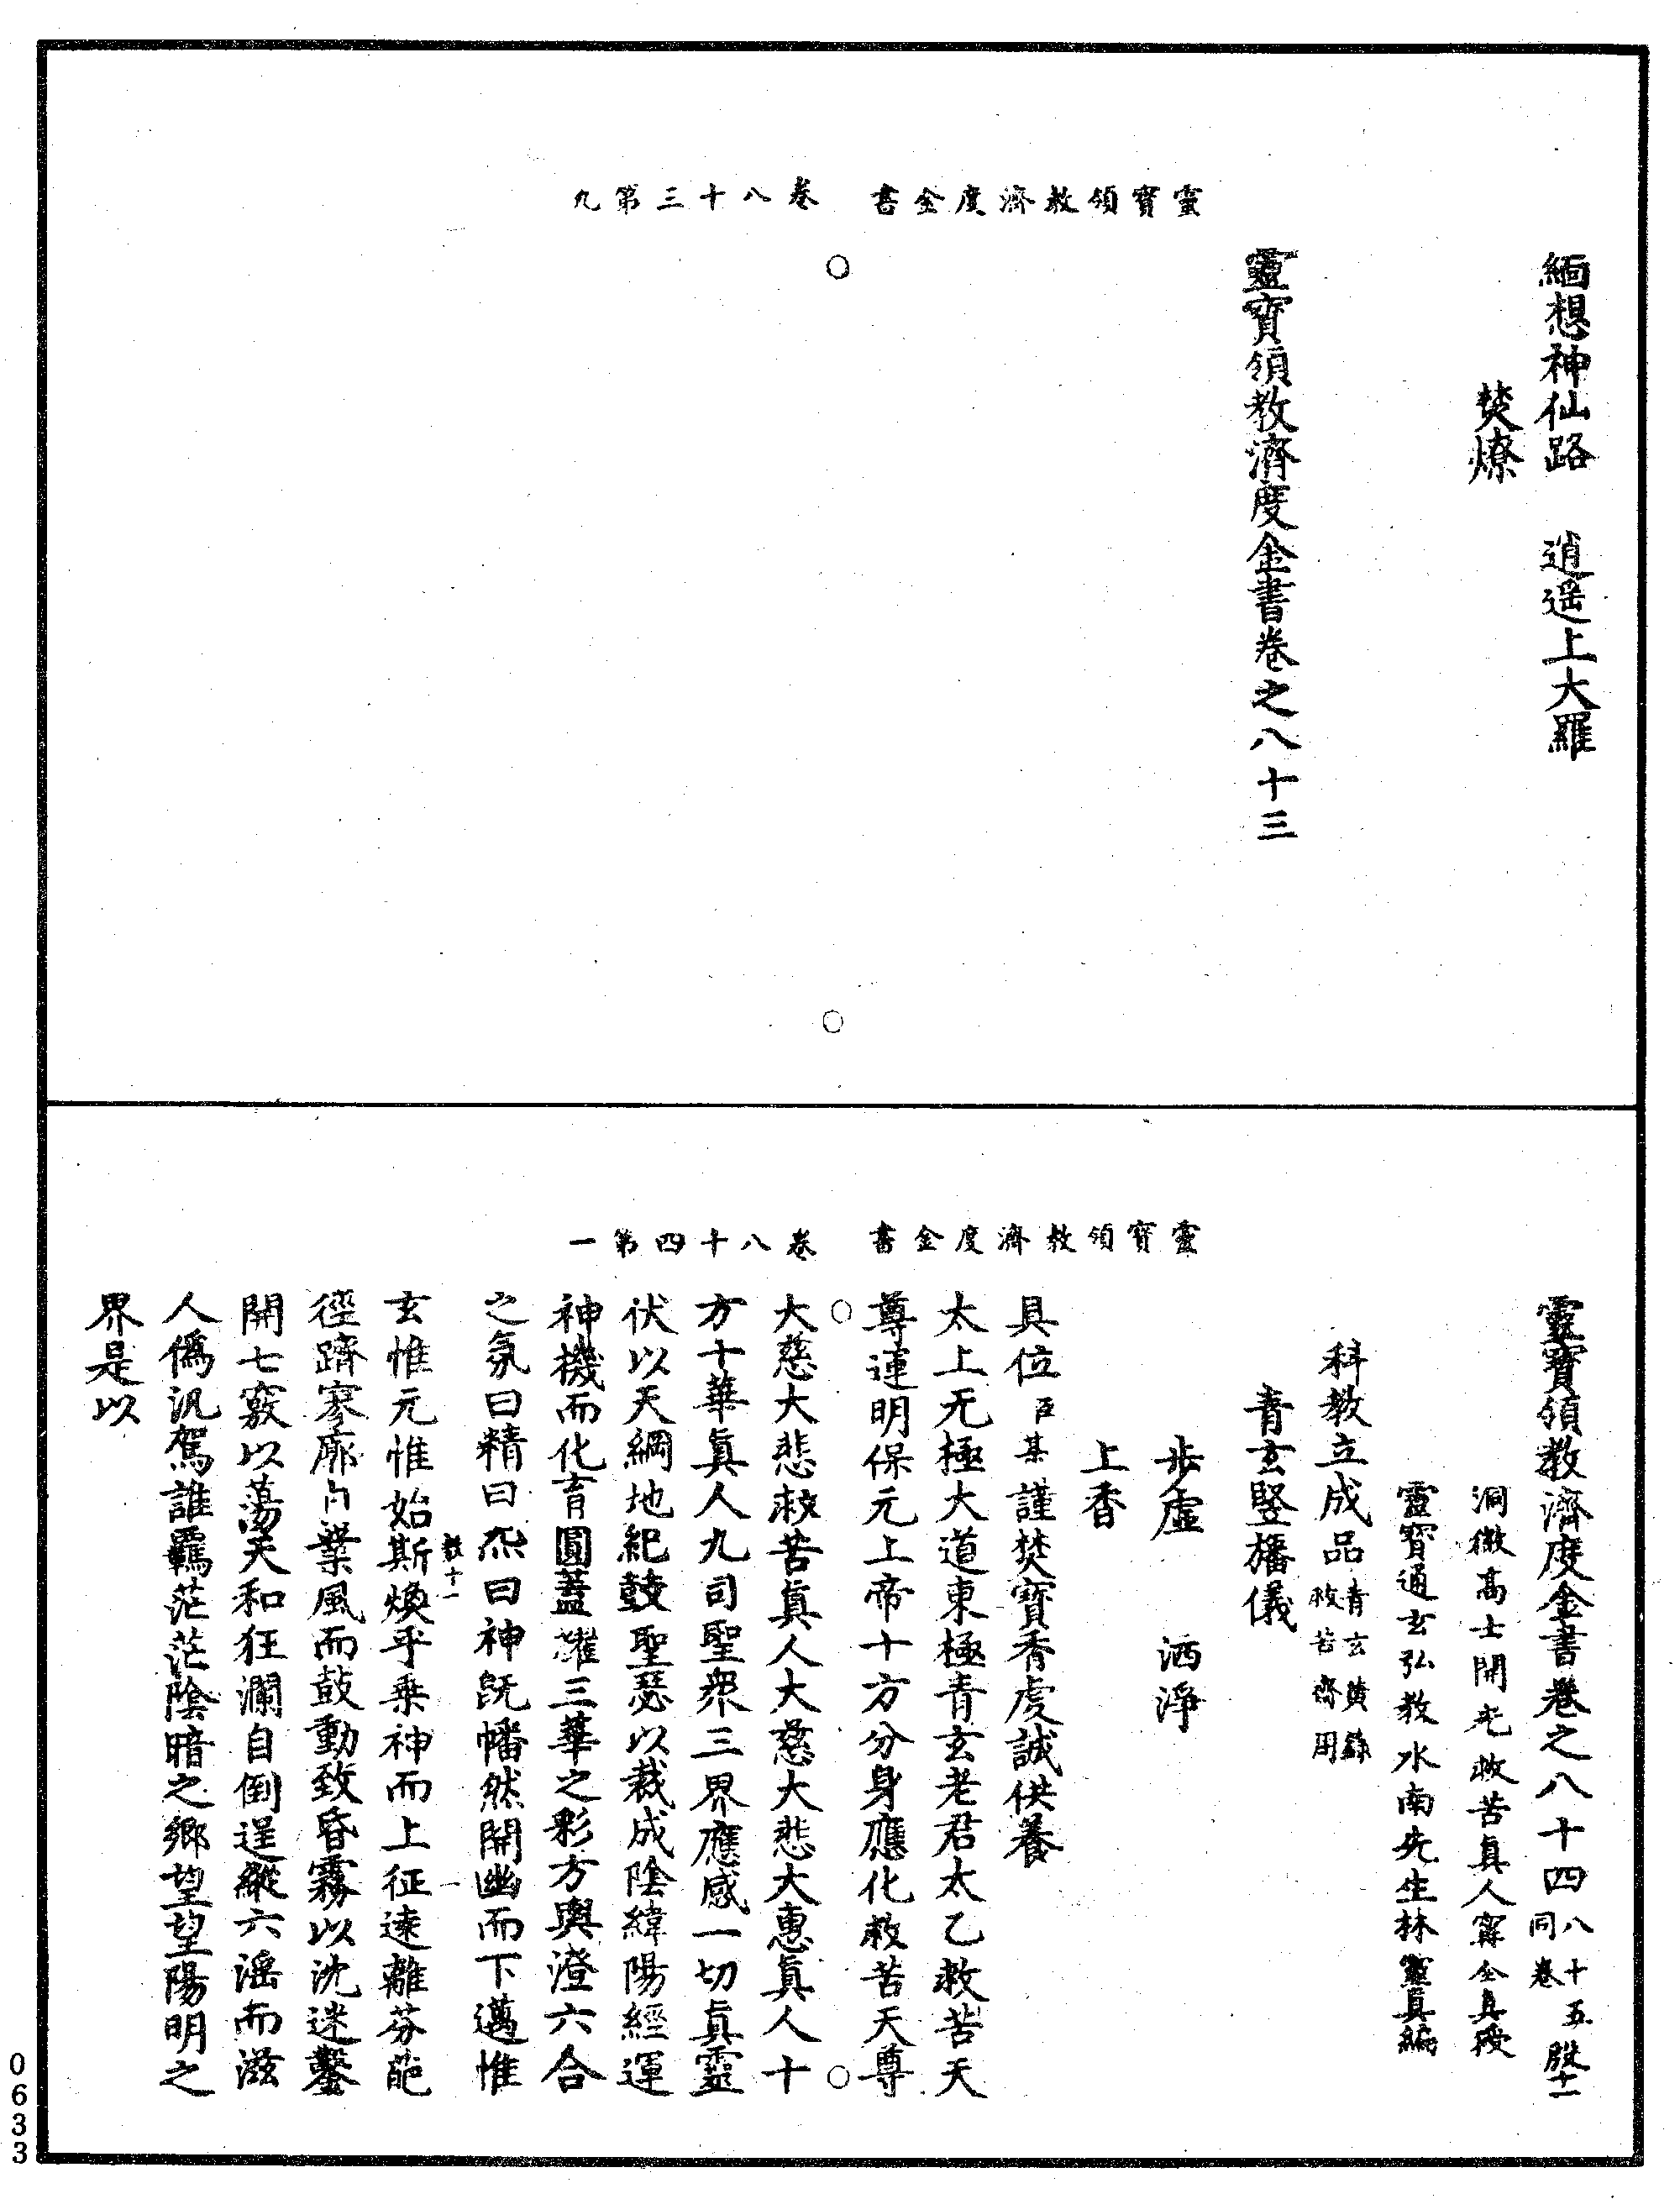 靈寶領教濟度金書　卷八十三第九
緬想神仙路　逍遥上大羅
焚燎
靈寶領教濟度金書卷之八十三
靈寶領教濟度金書　卷八十四第一
靈寶領教濟度金書卷之八十四　八十五同卷
洞微高士開光救苦眞人甯全眞授
靈寶通玄弘教水南先生林靈眞編
科教立成品　青玄黃籙救苦齋用
青玄竪旛儀
步虛　洒淨
上香
具位臣某謹焚寶香虔誠供養
太上无極大道東極青玄老君太乙救苦天
尊運明保元上帝十方分身應化救苦天尊
大慈大悲救苦眞人大慈大悲大惠眞人十
方十華眞人九司聖衆三界應感一切眞靈
伏以天綱地紀鼓聖瑟以裁成陰緯陽經運
神機而化育圓蓋燿三華之彩方輿澄六合
之氛曰精曰炁曰神旣幡然開幽而下邁惟
玄惟元惟始斯煥乎乘神而上征逺離芬葩
徑躋寥廓內業風而鼓動致昏霧以沈迷鑿
開七竅以蕩天和狂瀾自倒逞縱六淫而滋
人僞汎駕誰羈茫茫陰暗之鄉望望陽明之
界是以
0633